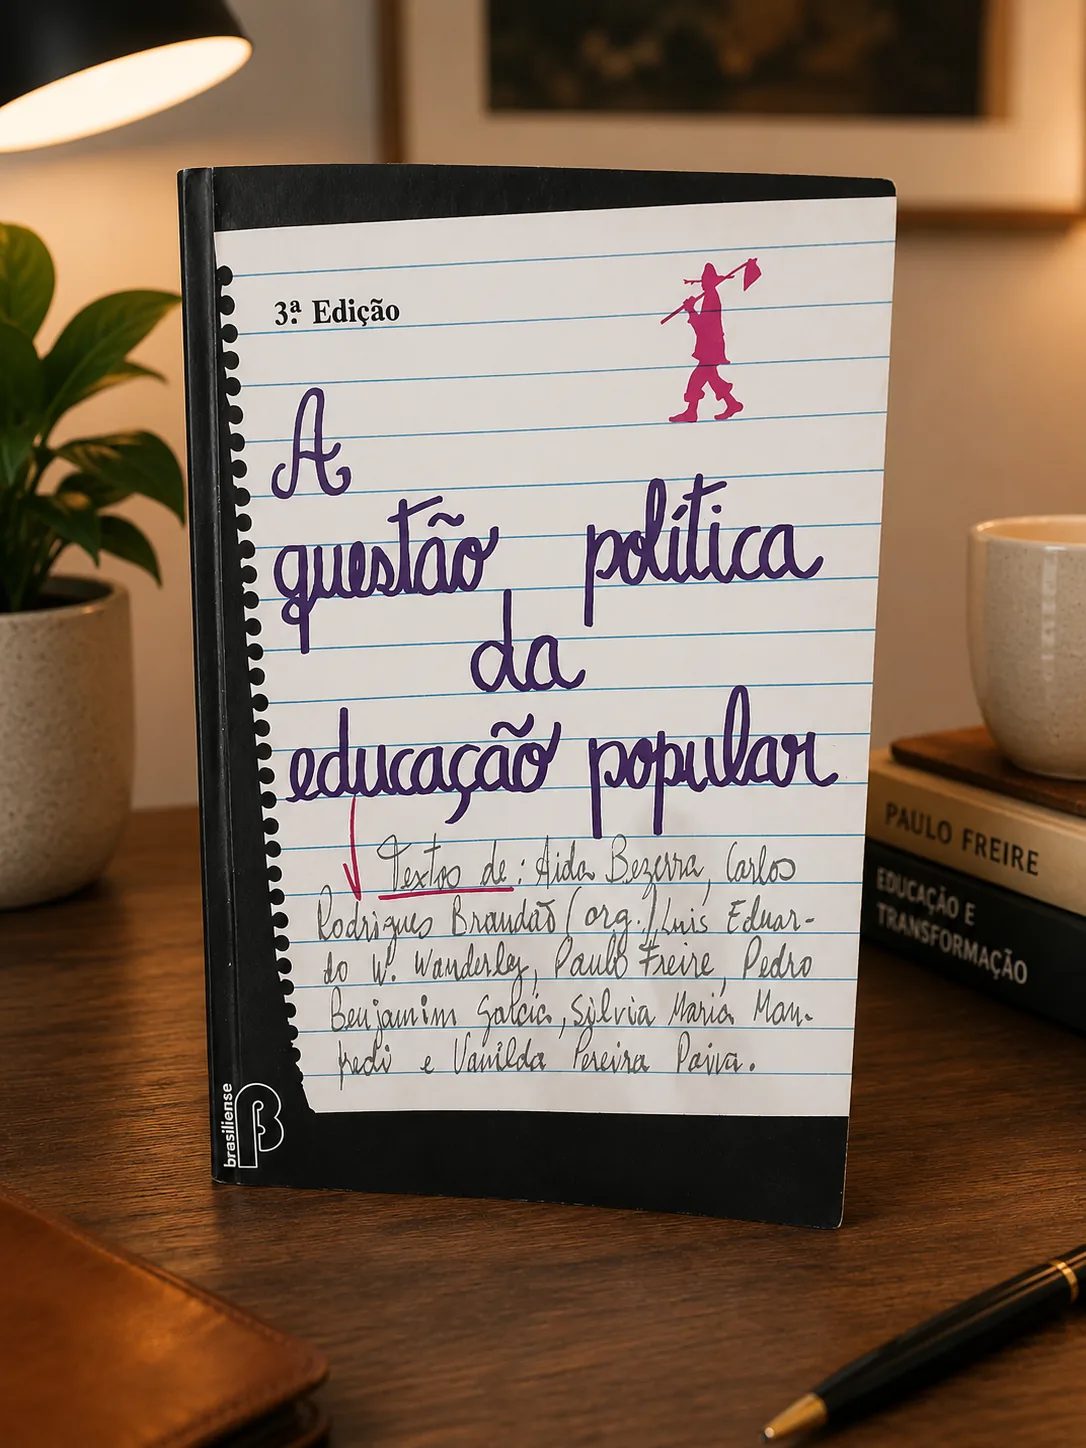 3ª Edição
A
questão política
da
educação popular
Textos de: Aida Bezerra, Carlos
Rodrigues Brandão (org.), Luis Eduar-
do W. Wanderley, Paulo Freire, Pedro
Benjamim Garcia, Sílvia Maria Man-
fredi e Vanilda Pereira Paiva.
brasiliense
PAULO FREIRE
EDUCAÇÃO E
TRANSFORMAÇÃO